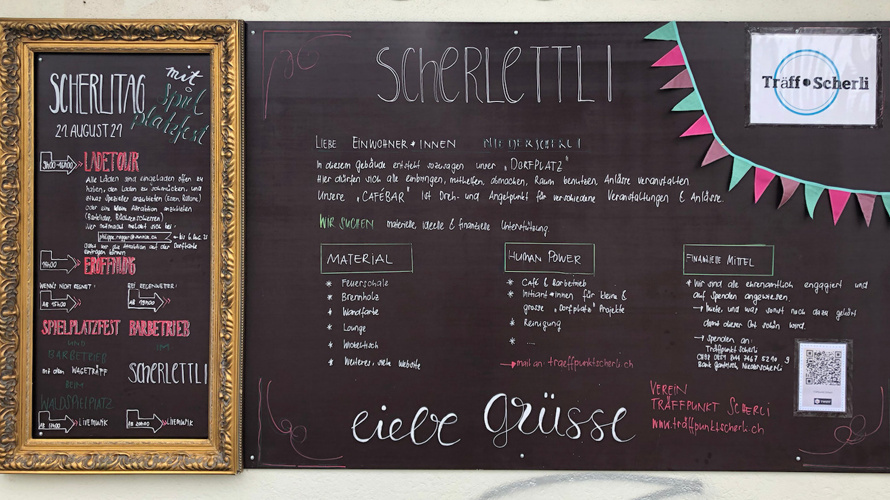 SCHERLITAG
mit
Spiel
platzfest
21 AUGUST 21
LADETOUR
Alle Läden sind eingeladen offen zu
haben, den Laden zu schmücken, und
etwas spezielles anzubieten
oder eine kleine Attraktion anzubieten
Wer mitmacht meldet sich bei:
ERÖFFNUNG
WENN'S NICHT REGNET:
BEI REGENWETTER:
SPIELPLATZFEST
UND
BARBETRIEB
mit dem WAGETRÄFF
BEIM
WALDSPIELPLATZ
LIVEMUSIK
BARBETRIEB
IM
SCHERLETTLI
LIVEMUSIK
SCHERLETTLI
Träff Scherli
LIEBE EINWOHNER*INNEN NIEDERSCHERLI
In diesem Gebäude entsteht sozusagen unser „DORFPLATZ"
Hier dürfen sich alle einbringen, mithelfen, abmachen, Raum benutzen, Anlässe veranstalten.
Unsere „CAFÉBAR" ist Dreh- und Angelpunkt für verschiedene Veranstaltungen & Anlässe.
WIR SUCHEN materielle, ideelle & finanzielle Unterstützung.
MATERIAL
* Feuerschale
* Brennholz
* Wandfarbe
* Lounge
* Wickeltisch
* Weiteres, siehe Website
HUMAN POWER
* Café & Barbetrieb
* Initiant*innen für kleine &
grosse „Dorfplatz" Projekte
* Reinigung
* ...
→ mail an: traeffpunktscherli.ch
FINANZIELLE MITTEL
* Wir sind alle ehrenamtlich engagiert und
auf Spenden angewiesen.
→ Miete, und was sonst noch dazu gehört
damit dieser Ort schön wird.
→ Spenden an:
Träffpunkt Scherli
Bank Gantrisch, Niederscherli
liebe Grüsse
VEREIN
TRÄFFPUNKT SCHERLI
www.träffpunktscherli.ch